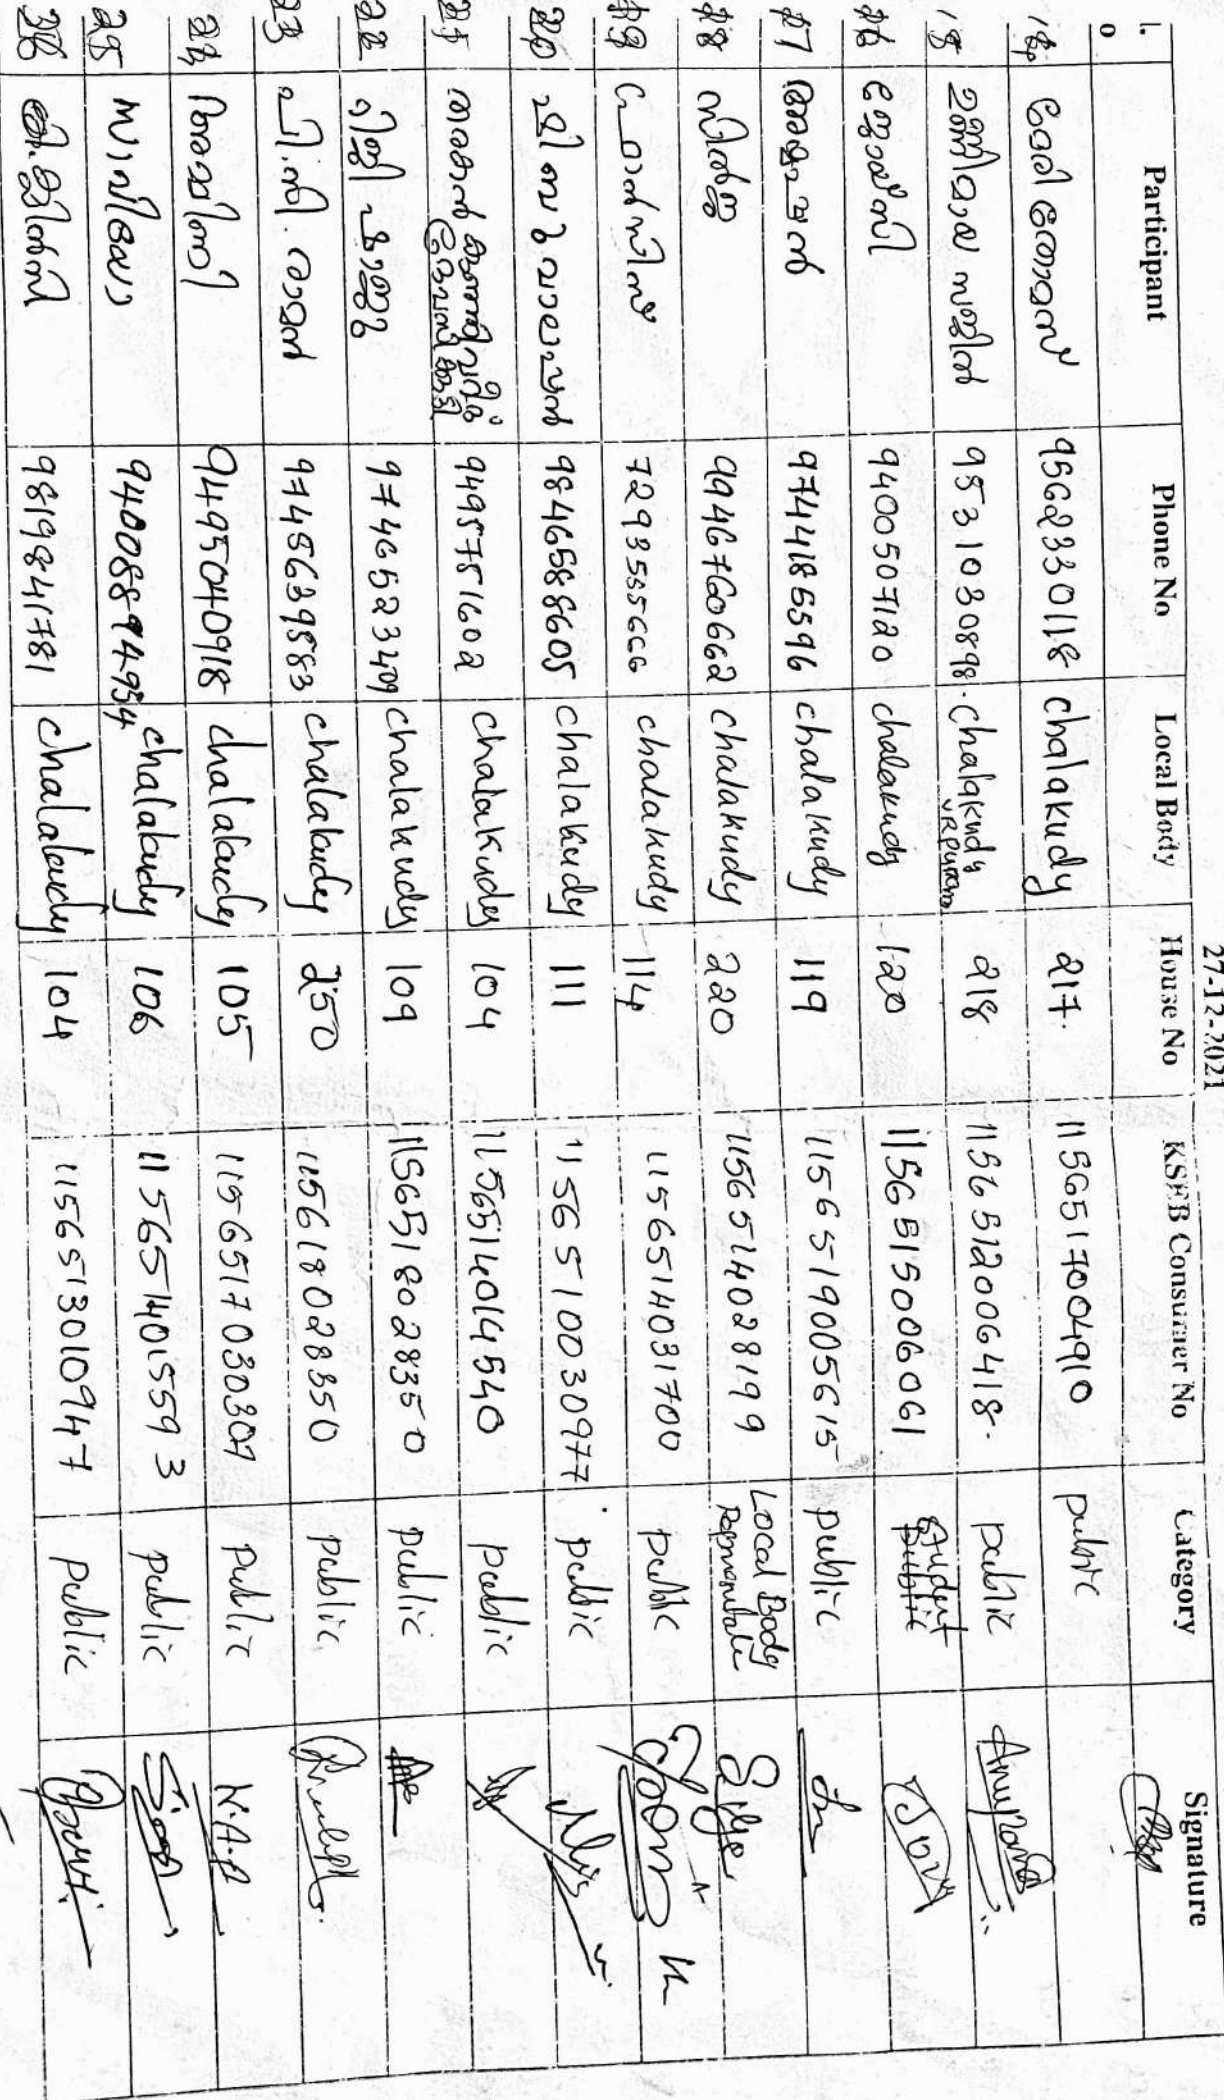 27-12-2021
l. o Participant Phone No Local Body House No KSEB Consumer No Category Signature
14 മേരി തോമസ് 9562330118 chalakudy 217. 1156517004910 public
15 ഉണ്ണിമായ സജിൽ 9531030898. chalakudy VRPuram 218 1156512006418. public
16 ജോയ്സി 9400507120 chalakudy 120 1156515006061 Student
17 അയ്യപ്പൻ 9744185596 chalakudy 119 1156519005615 public
18 സിൽജ 9946760662 chalakudy 220 1156514028199 Local Body Silja
19 7293535666 chalakudy 114 1156514031700 public
20 ഷിബു വാലപ്പൻ 9846588605 chalakudy 111 1156510030977 public
21 9495781602 chalakudy 104 1156514014540 public
22 9746523409 chalakudy 109 1156518028350 public
23 പി.സി. രാമൻ 9745639583 chalakudy 250 115618028350 public
24 9495040918 chalakudy 105 1156517030309 public N.A.P
25 സാവിയോ 9400889 4934 chalakudy 106 1156514015593 public
26 9819841781 chalakudy 104 1156513010947 public